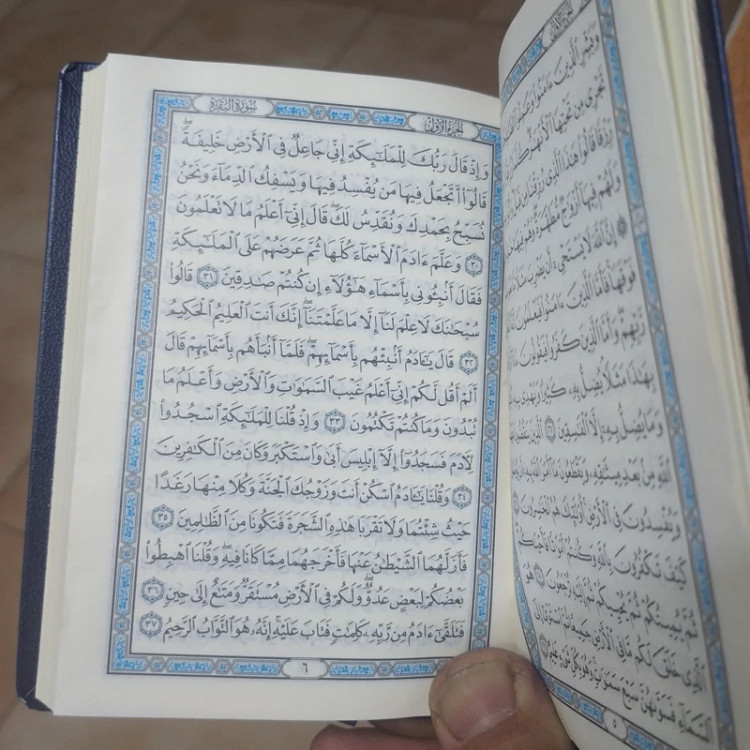 وَبَشِّرِ ٱلَّذِينَ ءَامَنُوا۟ وَعَمِلُوا۟
تَجْرِى مِن تَحْتِهَا ٱلْأَنْهَٰرُ
رِّزْقًا قَالُوا۟ هَٰذَا ٱلَّذِى رُزِقْنَا مِن
وَلَهُمْ فِيهَآ أَزْوَٰجٌ مُّطَهَّرَةٌ وَهُمْ فِيهَا
إِنَّ ٱللَّهَ لَا يَسْتَحْىِۦٓ أَن يَضْرِبَ مَثَلًا
فَوْقَهَا فَأَمَّا ٱلَّذِينَ ءَامَنُوا۟ فَيَعْلَمُونَ
رَّبِّهِمْ وَأَمَّا ٱلَّذِينَ كَفَرُوا۟ فَيَقُولُونَ
بِهَٰذَا مَثَلًا يُضِلُّ بِهِۦ كَثِيرًا وَيَهْدِى
وَمَا يُضِلُّ بِهِۦٓ إِلَّا ٱلْفَٰسِقِينَ ٢٦ ٱلَّذِينَ يَنقُضُونَ
ٱللَّهِ مِنۢ بَعْدِ مِيثَٰقِهِۦ وَيَقْطَعُونَ مَآ أَمَرَ ٱللَّهُ بِهِۦٓ أَن يُوصَلَ
وَيُفْسِدُونَ فِى ٱلْأَرْضِ أُو۟لَٰٓئِكَ هُمُ ٱلْخَٰسِرُونَ ٢٧
كَيْفَ تَكْفُرُونَ بِٱللَّهِ وَكُنتُمْ أَمْوَٰتًا فَأَحْيَٰكُمْ
ثُمَّ يُمِيتُكُمْ ثُمَّ يُحْيِيكُمْ ثُمَّ إِلَيْهِ تُرْجَعُونَ ٢٨ هُوَ
ٱلَّذِى خَلَقَ لَكُم مَّا فِى ٱلْأَرْضِ جَمِيعًا ثُمَّ ٱسْتَوَىٰٓ إِلَى
ٱلسَّمَآءِ فَسَوَّىٰهُنَّ سَبْعَ سَمَٰوَٰتٍ وَهُوَ بِكُلِّ شَىْءٍ عَلِيمٌ ٢٩
٥
الجزء الأول
سورة البقرة
وَإِذْ قَالَ رَبُّكَ لِلْمَلَٰٓئِكَةِ إِنِّى جَاعِلٌ فِى ٱلْأَرْضِ خَلِيفَةً ۖ
قَالُوٓا۟ أَتَجْعَلُ فِيهَا مَن يُفْسِدُ فِيهَا وَيَسْفِكُ ٱلدِّمَآءَ وَنَحْنُ
نُسَبِّحُ بِحَمْدِكَ وَنُقَدِّسُ لَكَ ۖ قَالَ إِنِّىٓ أَعْلَمُ مَا لَا تَعْلَمُونَ
٣٠ وَعَلَّمَ ءَادَمَ ٱلْأَسْمَآءَ كُلَّهَا ثُمَّ عَرَضَهُمْ عَلَى ٱلْمَلَٰٓئِكَةِ
فَقَالَ أَنۢبِـُٔونِى بِأَسْمَآءِ هَٰٓؤُلَآءِ إِن كُنتُمْ صَٰدِقِينَ ٣١ قَالُوا۟
سُبْحَٰنَكَ لَا عِلْمَ لَنَآ إِلَّا مَا عَلَّمْتَنَآ ۖ إِنَّكَ أَنتَ ٱلْعَلِيمُ ٱلْحَكِيمُ
٣٢ قَالَ يَٰٓـَٔادَمُ أَنۢبِئْهُم بِأَسْمَآئِهِمْ ۖ فَلَمَّآ أَنۢبَأَهُم بِأَسْمَآئِهِمْ قَالَ
أَلَمْ أَقُل لَّكُمْ إِنِّىٓ أَعْلَمُ غَيْبَ ٱلسَّمَٰوَٰتِ وَٱلْأَرْضِ وَأَعْلَمُ مَا
تُبْدُونَ وَمَا كُنتُمْ تَكْتُمُونَ ٣٣ وَإِذْ قُلْنَا لِلْمَلَٰٓئِكَةِ ٱسْجُدُوا۟
لِءَادَمَ فَسَجَدُوٓا۟ إِلَّآ إِبْلِيسَ أَبَىٰ وَٱسْتَكْبَرَ وَكَانَ مِنَ ٱلْكَٰفِرِينَ
٣٤ وَقُلْنَا يَٰٓـَٔادَمُ ٱسْكُنْ أَنتَ وَزَوْجُكَ ٱلْجَنَّةَ وَكُلَا مِنْهَا رَغَدًا
حَيْثُ شِئْتُمَا وَلَا تَقْرَبَا هَٰذِهِ ٱلشَّجَرَةَ فَتَكُونَا مِنَ ٱلظَّٰلِمِينَ ٣٥
فَأَزَلَّهُمَا ٱلشَّيْطَٰنُ عَنْهَا فَأَخْرَجَهُمَا مِمَّا كَانَا فِيهِ ۖ وَقُلْنَا ٱهْبِطُوا۟
بَعْضُكُمْ لِبَعْضٍ عَدُوٌّ ۖ وَلَكُمْ فِى ٱلْأَرْضِ مُسْتَقَرٌّ وَمَتَٰعٌ إِلَىٰ حِينٍ ٣٦
فَتَلَقَّىٰٓ ءَادَمُ مِن رَّبِّهِۦ كَلِمَٰتٍ فَتَابَ عَلَيْهِ ۚ إِنَّهُۥ هُوَ ٱلتَّوَّابُ ٱلرَّحِيمُ ٣٧
٦